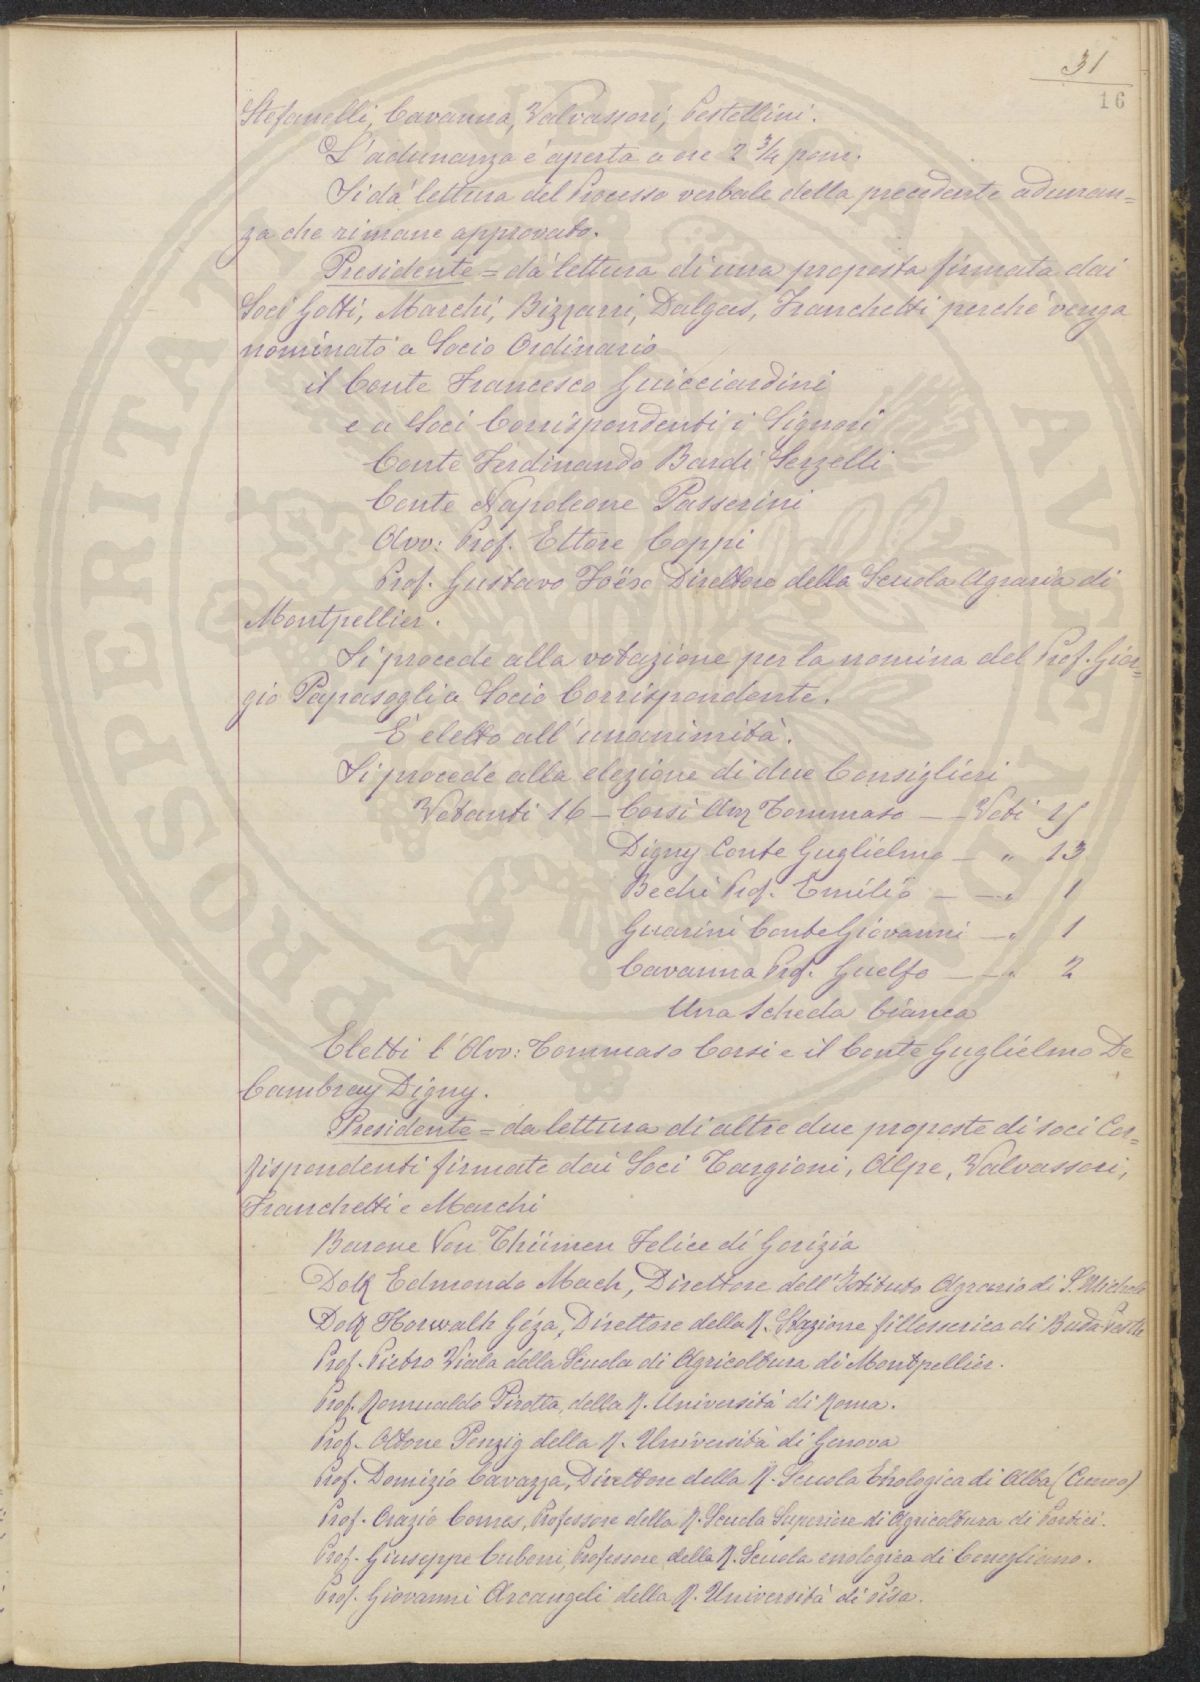 31
16
Stefanelli, Cavanna, Valvassori, Pestellini.
L'adunanza è aperta a ore 2 3/4 pom.
Si dà lettura del Processo verbale della precedente adunan=
za che rimane approvato.
Presidente = dà lettura di una proposta firmata dai
Soci Gotti, Marchi, Bizzarri, Dalgas, Franchetti perchè venga
nominato a Socio Ordinario
il Conte Francesco Guicciardini
e a Soci Corrispondenti i Signori
Conte Ferdinando Bardi Serzelli
Conte Napoleone Passerini
Avv: Prof. Ettore Coppi
Prof. Gustavo Foëx Direttore della Scuola Agraria di
Montpellier.
Si procede alla votazione per la nomina del Prof. Gior=
gio Papasogli a Socio Corrispondente.
È eletto all'unanimità.
Si procede alla elezione di due Consiglieri
Votanti 16 — Corsi Avv Tommaso — — Voti 15
Digny Conte Guglielmo — " 13
Bechi Prof. Emilio — — " 1
Guarini Conte Giovanni — " 1
Cavanna Prof. Guelfo — — " 2
Una scheda bianca
Eletti l'Avv: Tommaso Corsi e il Conte Guglielmo De
Cambray Digny.
Presidente = da lettura di altre due proposte di soci Cor=
rispondenti firmate dai Soci Targioni, Alpe, Valvassori,
Franchetti e Marchi
Barone Von Thümen Felice di Gorizia
Dott Edmondo Mach, Direttore dell'Istituto Agrario di S. Michele
Dott Horwath Géza, Direttore della R. Stazione fillosserica di Buda Pesth
Prof. Pietro Viala della Scuola di Agricoltura di Montpellier.
Prof. Romualdo Pirotta, della R. Università di Roma.
Prof. Ottone Penzig della R. Università di Genova
Prof. Domizio Cavazza, Direttore della R. Scuola Enologica di Alba (Cuneo)
Prof. Orazio Comes, Professore della R. Scuola Superiore di Agricoltura di Portici.
Prof. Giuseppe Cuboni, Professore della R. Scuola enologica di Conegliano.
Prof. Giovanni Arcangeli della R. Università di Pisa.
PROSPERITATI
PUBLICAE
AUGENDAE